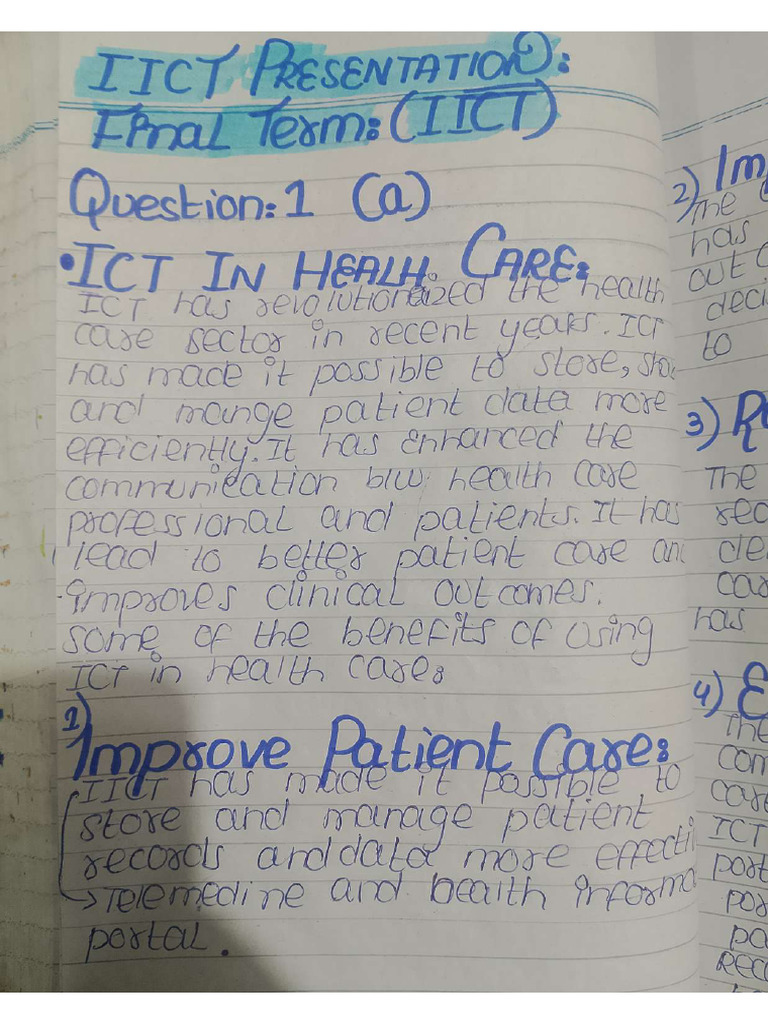 IICT PRESENTATION:
Final Term: (IICT)
Question: 1 (a)
• ICT IN HEALH CARE:
ICT has revolutionized the health
care sector in recent years. ICT
has made it possible to store,
and mange patient data more
efficiently. It has enhanced the
communication b/w health care
professional and patients. It has
lead to better patient care an
improves clinical outcomes.
some of the benefits of using
ICT in health care:
1) Improve Patient Care:
IICT has made it possible to
store and manage patient
records and data more effecti
→ Telemedine and health informa
portal.
2) Im
The
has
out
deci
to
3) R
The
rec
cle
car
has
4) E
The
com
care
ICT
port
por
pa
Reco